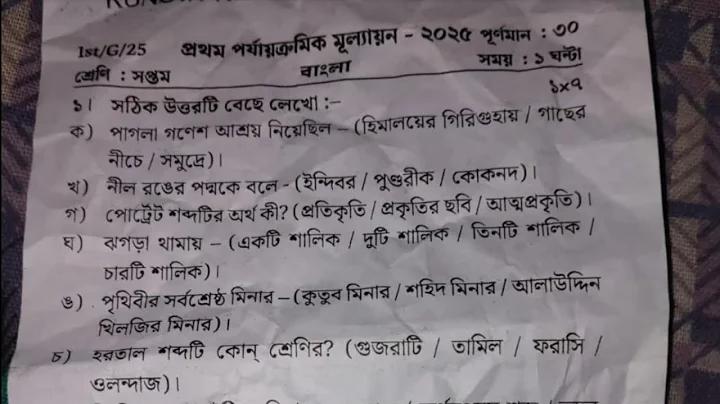 1st/G/25 প্রথম পর্যায়ক্রমিক মূল্যায়ন - ২০২৫ পূর্ণমান : ৩০
শ্রেণি : সপ্তম বাংলা সময় : ১ ঘন্টা
১। সঠিক উত্তরটি বেছে লেখো :– ১x৭
ক) পাগলা গণেশ আশ্রয় নিয়েছিল – (হিমালয়ের গিরিগুহায় / গাছের
নীচে / সমুদ্রে)।
খ) নীল রঙের পদ্মকে বলে - (ইন্দিবর / পুণ্ডরীক / কোকনদ)।
গ) পোর্ট্রেট শব্দটির অর্থ কী? (প্রতিকৃতি / প্রকৃতির ছবি / আত্মপ্রকৃতি)।
ঘ) ঝগড়া থামায় – (একটি শালিক / দুটি শালিক / তিনটি শালিক /
চারটি শালিক)।
ঙ) পৃথিবীর সর্বশ্রেষ্ঠ মিনার – (কুতুব মিনার / শহিদ মিনার / আলাউদ্দিন
খিলজির মিনার)।
চ) হরতাল শব্দটি কোন্ শ্রেণির? (গুজরাটি / তামিল / ফরাসি /
ওলন্দাজ)।